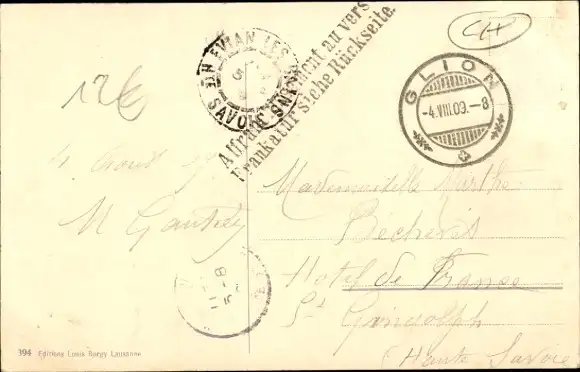 CH
EVIAN LES BAINS
HTE SAVOIE
Affranchissement au verso
Frankatur siehe Rückseite.
GLION
-4.VIII.09.-8
12€
4 Août 09
M Gautrey
Mademoiselle Marthe
Hotel de France
St Gingolph
(Haute Savoie
394 Editions Louis Burgy Lausanne